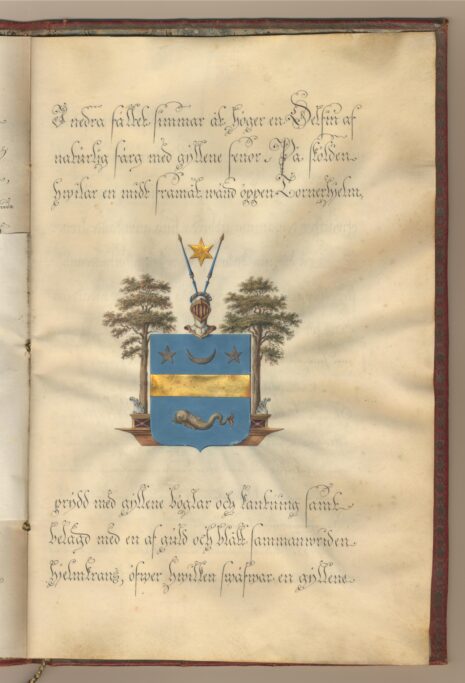 I nedra fältet simmar åt höger en Delfin af
naturlig färg med gyllene fenor. På skölden
hwilar en midt framåt wänd öppen Tornerhjelm,
prydd med gyllene böglar och kantning samt
belagd med en af guld och blått sammanwriden
Hjelmkrans, öfwer hwilken swäfwar en gyllene